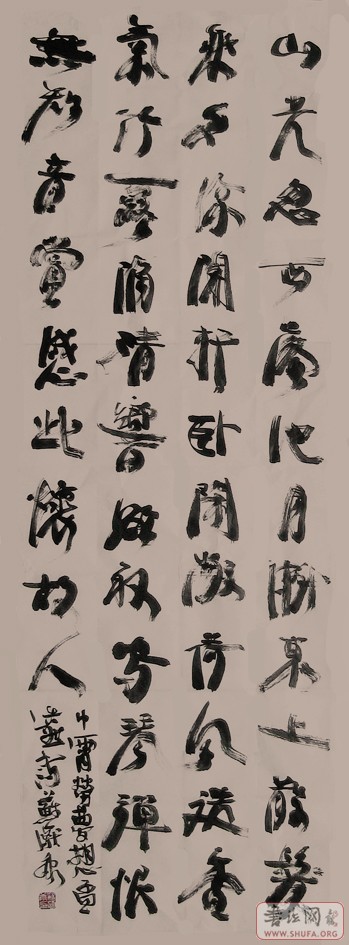 山光忽西落池月漸東上散髮
乘夕涼開軒臥閑敞荷風送香
氣竹露滴清響欲取鳴琴彈恨
無知音賞感此懷故人
中宵勞夢想
書法网
WWW.SHUFA.ORG